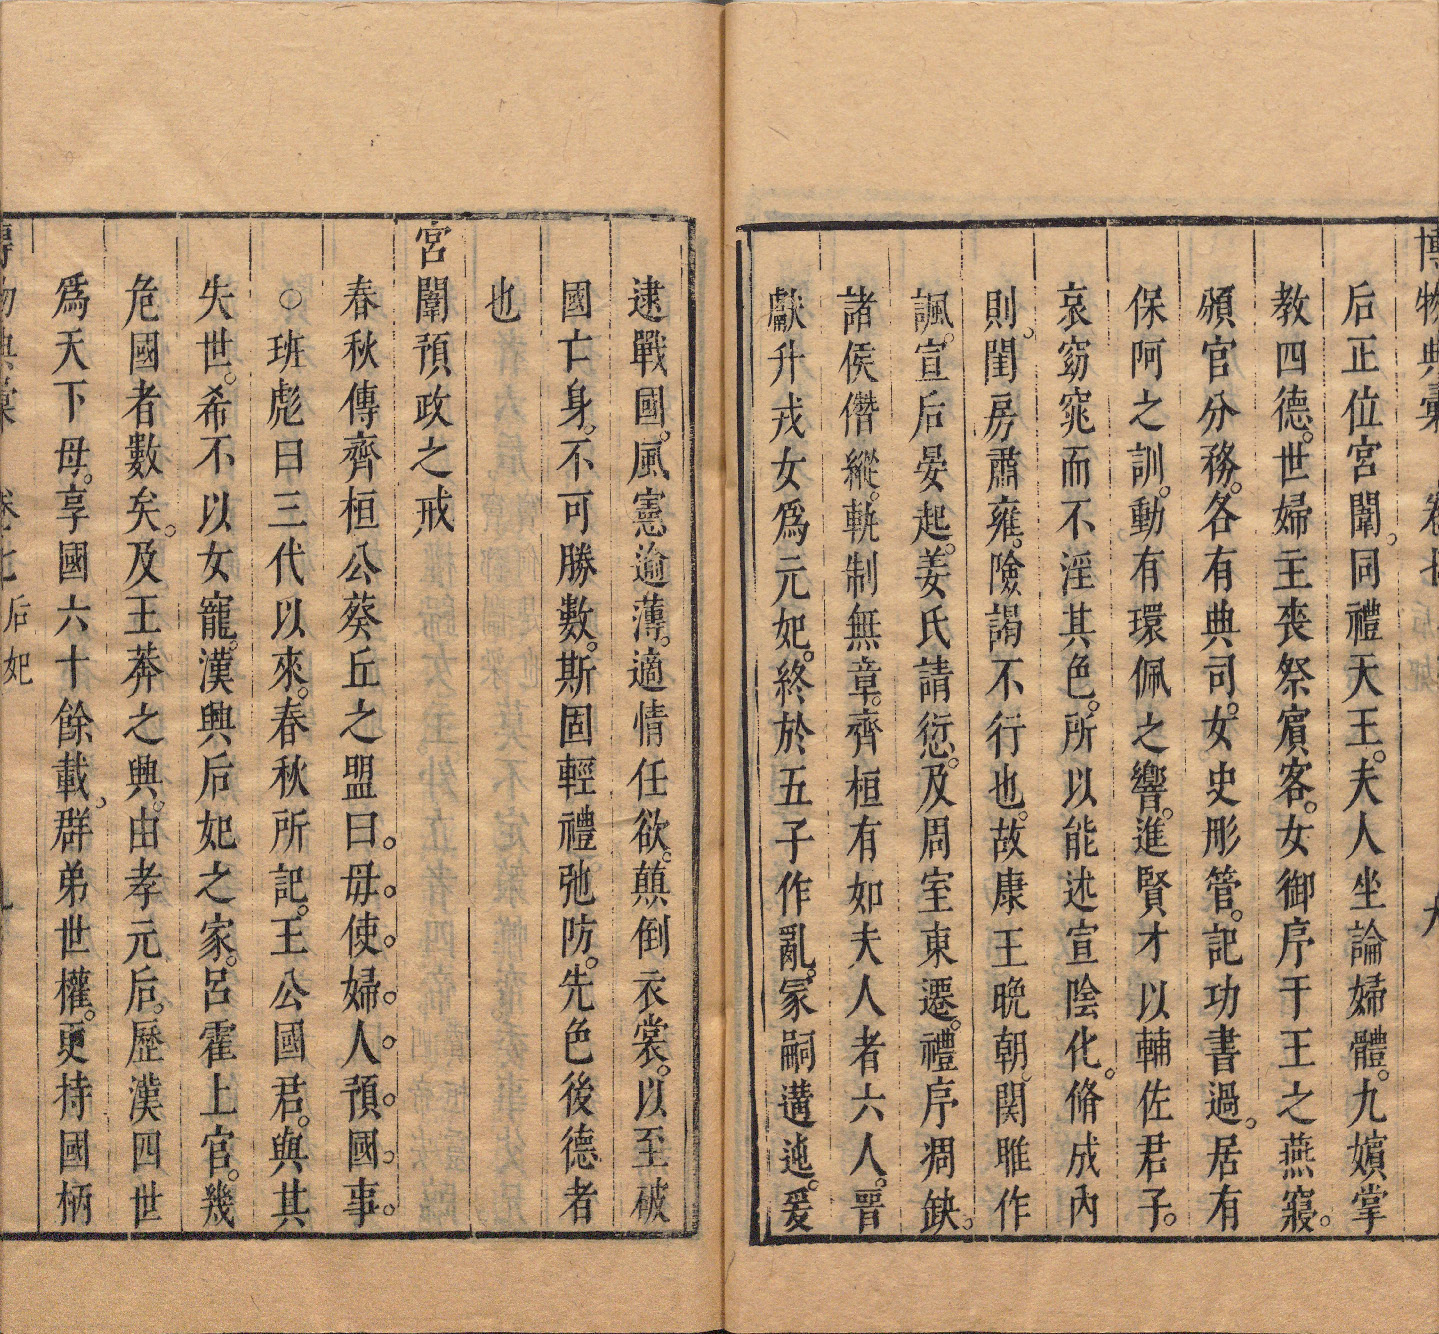 博物典彙 卷七 后妃 九
后正位宮闈。同禮天王。夫人坐論婦體。九嬪掌
教四德。世婦主喪祭賓客。女御序于王之燕寢。
頒官分務。各有典司。女史彤管。記功書過。居有
保阿之訓。動有環佩之響。進賢才以輔佐君子。
哀窈窕而不淫其色。所以能述宣陰化。脩成內
則。閨房肅雍。險謁不行也。故康王晚朝。関雎作
諷。宣后晏起。姜氏請愆。及周室東遷。禮序凋缺。
諸侯僭縱。軌制無章。齊桓有如夫人者六人。晋
獻升戎女爲元妃。終於五子作亂。冢嗣遘迍。爰
逮戰國。風憲逾薄。適情任欲。顛倒衣裳。以至破
國亡身。不可勝數。斯固輕禮弛防。先色後德者
也
宮闈預政之戒
春秋傳齊桓公葵丘之盟曰。毋。使。婦。人。預。國。事。
○班彪曰三代以來。春秋所記。王公國君。與其
失世。希不以女寵。漢興后妃之家。呂霍上官。幾
危國者數矣。及王莽之興。由孝元后。歷漢四世
爲天下母。享國六十餘載。群弟世權。更持國柄
博物典彙 卷七 后妃